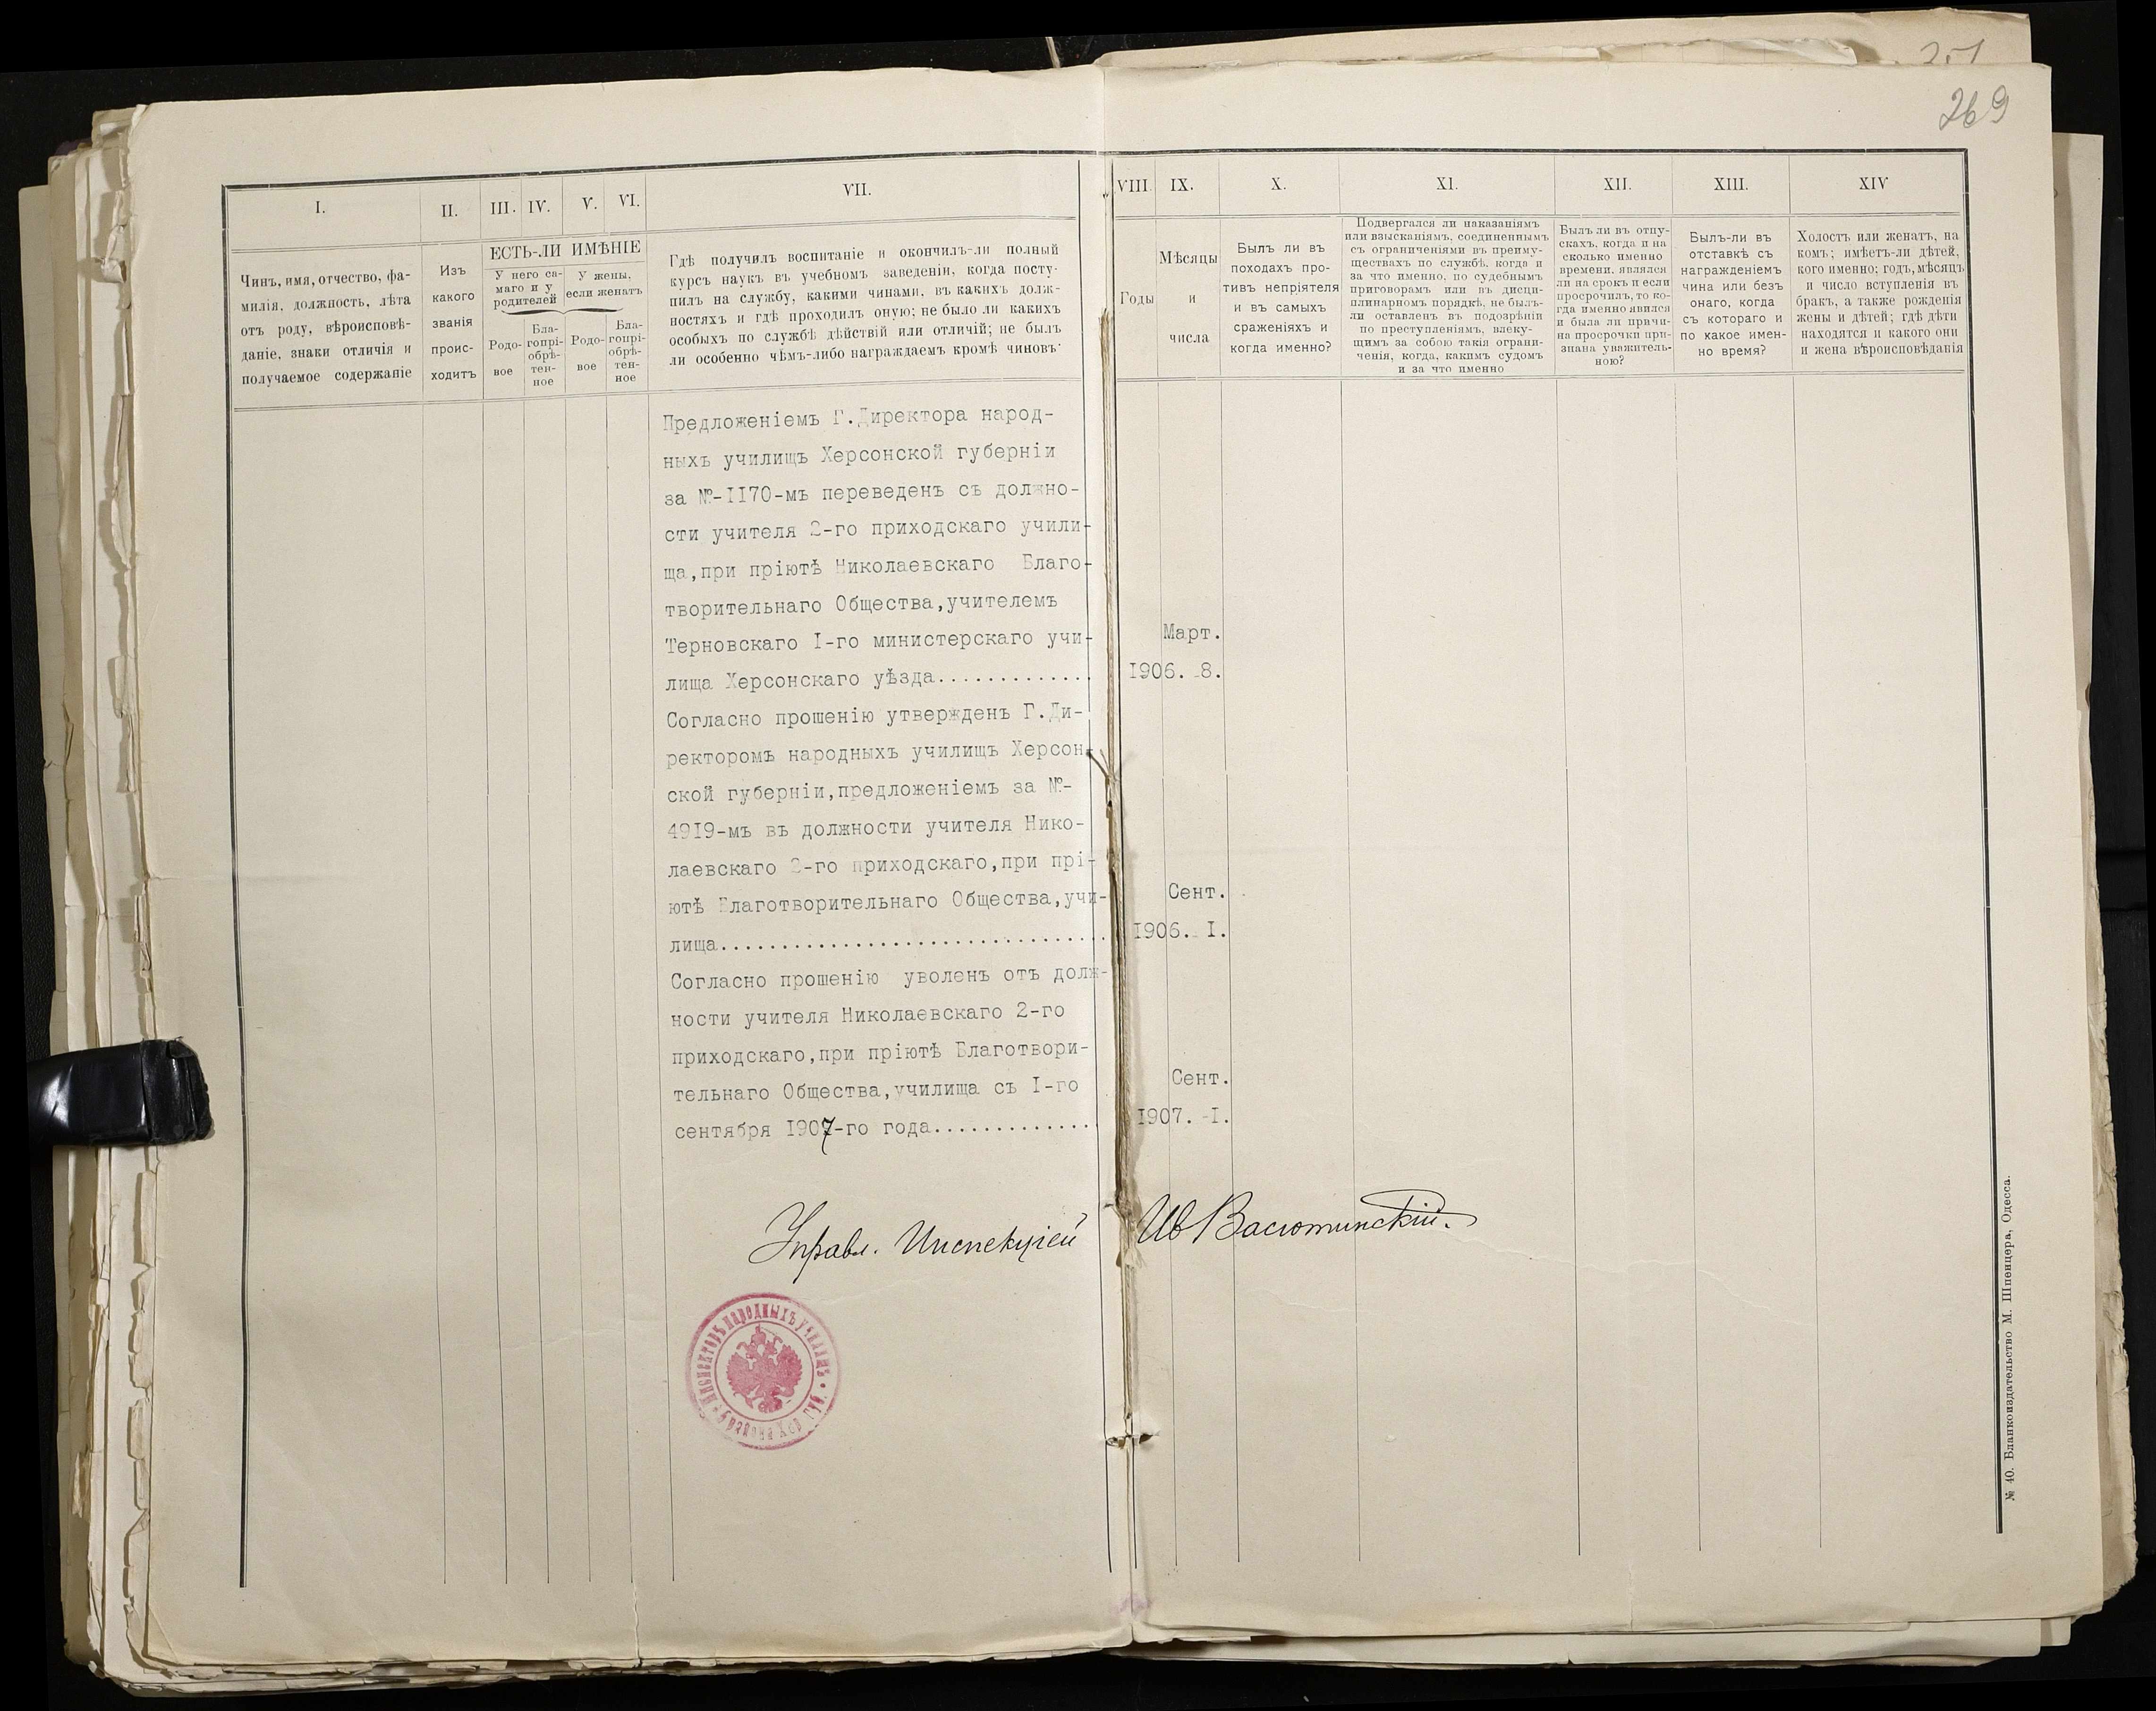 269
I.
II.
III.
IV.
V.
VI.
VII.
VIII.
IX.
X.
XI.
XII.
XIII.
XIV
Чинъ, имя, отчество, фа-
милія, должность, лѣта
отъ роду, вѣроисповѣ-
даніе, знаки отличія и
получаемое содержаніе
Изъ
какого
званія
проис-
ходитъ
ЕСТЬ-ЛИ ИМѢНІЕ
У него са-
маго и у
родителей
У жены,
если женатъ
Родо-
вое
Бла-
гопрі-
обрѣ-
тен-
ное
Родо-
вое
Бла-
гопрі-
обрѣ-
тен-
ное
Гдѣ получилъ воспитаніе и окончилъ-ли полный
курсъ наукъ въ учебномъ заведеніи, когда посту-
пилъ на службу, какими чинами, въ какихъ долж-
ностяхъ и гдѣ проходилъ оную; не было ли какихъ
особыхъ по службѣ дѣйствій или отличій; не былъ
ли особенно чѣмъ-либо награждаемъ кромѣ чиновъ
Годы
Мѣсяцы
и
числа
Былъ ли въ
походахъ про-
тивъ непріятеля
и въ самыхъ
сраженіяхъ и
когда именно?
Подвергался ли наказаніямъ
или взысканіямъ, соединеннымъ
съ ограниченіями въ преиму-
ществахъ по службѣ, когда и
за что именно, по судебнымъ
приговорамъ или въ дисци-
плинарномъ порядкѣ, не былъ-
ли оставленъ въ подозрѣніи
по преступленіямъ, влеку-
щимъ за собою такія ограни-
ченія, когда, какимъ судомъ
и за что именно
Былъ ли въ отпу-
скахъ, когда и на
сколько именно
времени, являлся
ли на срокъ и если
просрочилъ, то ко-
гда именно явился
и была ли причи-
на просрочки при-
знана уважитель-
ною?
Былъ-ли въ
отставкѣ съ
награжденіемъ
чина или безъ
онаго, когда
съ котораго и
по какое имен-
но время?
Холостъ или женатъ, на
комъ; имѣетъ-ли дѣтей,
кого именно; годъ, мѣсяцъ
и число вступленія въ
бракъ, а также рожденія
жены и дѣтей; гдѣ дѣти
находятся и какого они
и жена вѣроисповѣданія
Предложеніемъ Г.Директора народ-
ныхъ училищъ Херсонской губерніи
за №-II70-мъ переведенъ съ должно-
сти учителя 2-го приходскаго учили-
ща,при пріютѣ Николаевскаго Благо-
творительнаго Общества,учителемъ
Терновскаго I-го министерскаго учи-
лища Херсонскаго уѣзда.............
Март.
I906. 8.
Согласно прошенію утвержденъ Г.Ди-
ректоромъ народныхъ училищъ Херсон-
ской губерніи,предложеніемъ за №-
49I9-мъ въ должности учителя Нико-
лаевскаго 2-го приходскаго,при прі-
ютѣ Благотворительнаго Общества,учи-
лища................................
Сент.
I906. I.
Согласно прошенію уволенъ отъ долж-
ности учителя Николаевскаго 2-го
приходскаго,при пріютѣ Благотвори-
тельнаго Общества,училища съ I-го
сентября I907-го года..............
Сент.
I907. -I.
Управл. Инспекціей Ив Васютинскій.
Инспекторъ народныхъ училищъ
района Хер. губ.
№ 40. Бланкоиздательство М. Шпенцера, Одесса.